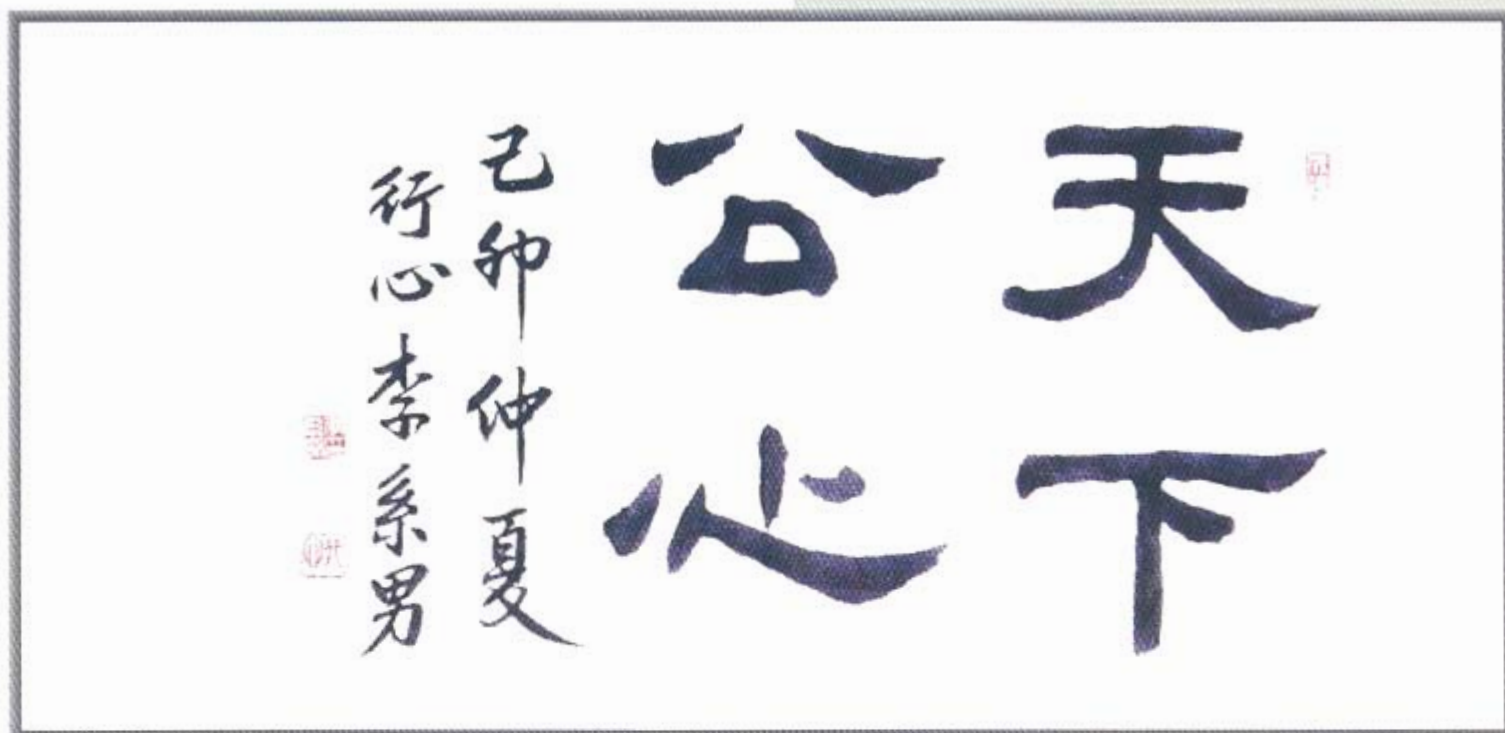 天下
公心
己卯仲夏
行心李系男